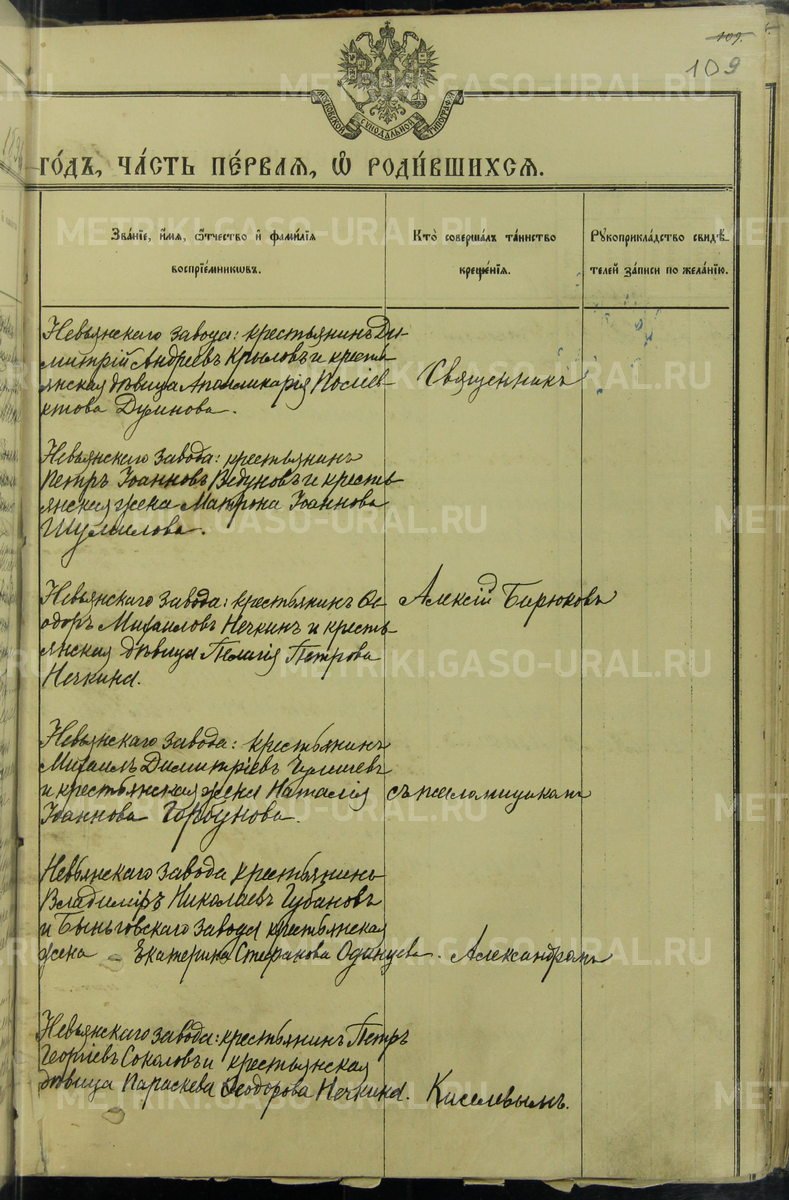 109.
109
МОСКОВСКОЙ СѴНОДАЛЬНОЙ ТИПОГРАФІИ
ГО́ДЪ, ЧА́СТЬ ПЕ́РВАЯ, Ѡ РОДИ́ВШИХСЯ.
Зва́нїе, и҆́мя, ѻ҆́тчество и҆ фами́лїя
воспрїе́мникωвъ.
Кто̀ соверша́лъ та́инство
креще́нїя.
Рꙋкоприкла́дство свидѣ́-
телей за́писи по жела́нїю.
Невьянскаго завода: крестьянинъ Ди-
митрій Андреевъ Крыловъ и кресть-
янская дѣвица Аполлинарія Поліев-
ктова Думнова.
Священникъ
Невьянскаго завода: крестьянинъ
Петръ Іоанновъ Ведуновъ и кресть-
янская жена Матрона Іоаннова
Шумилова.
Невьянскаго завода: крестьянинъ Ѳе-
одоръ Михаиловъ Нечкинъ и кресть-
янская дѣвица Пелагія Петрова
Нечкина.
Алексій Бирюковъ
Невьянскаго завода: крестьянинъ
Михаилъ Димитріевъ
и крестьянская жена Наталія
Іоаннова Горбунова.
съ псаломщикомъ
Невьянскаго завода крестьянинъ
Владиміръ Николаевъ Губановъ
и Быньговскаго завода крестьянская
жена – Екатерина Стефанова Одинцева.
Александромъ
Невьянскаго завода: крестьянинъ Петръ
Георгіевъ Соколовъ и крестьянская
дѣвица Параскева Ѳеодорова Нечкина.
Киселевымъ.
METRIKI.GASO-URAL.RU